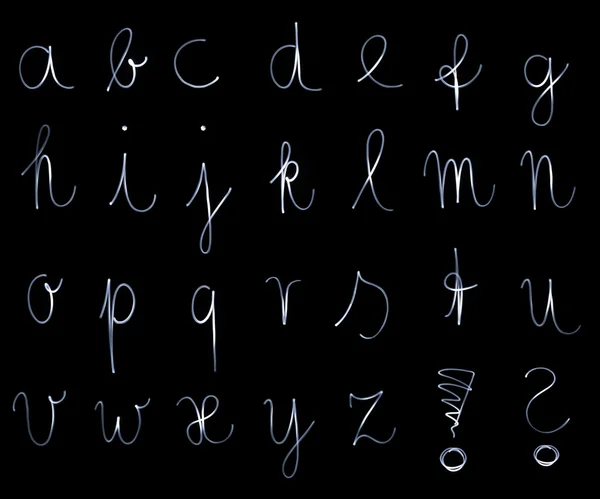 a b c d e f g
h i j k l m n
o p q r s t u
v w x y z ! ?